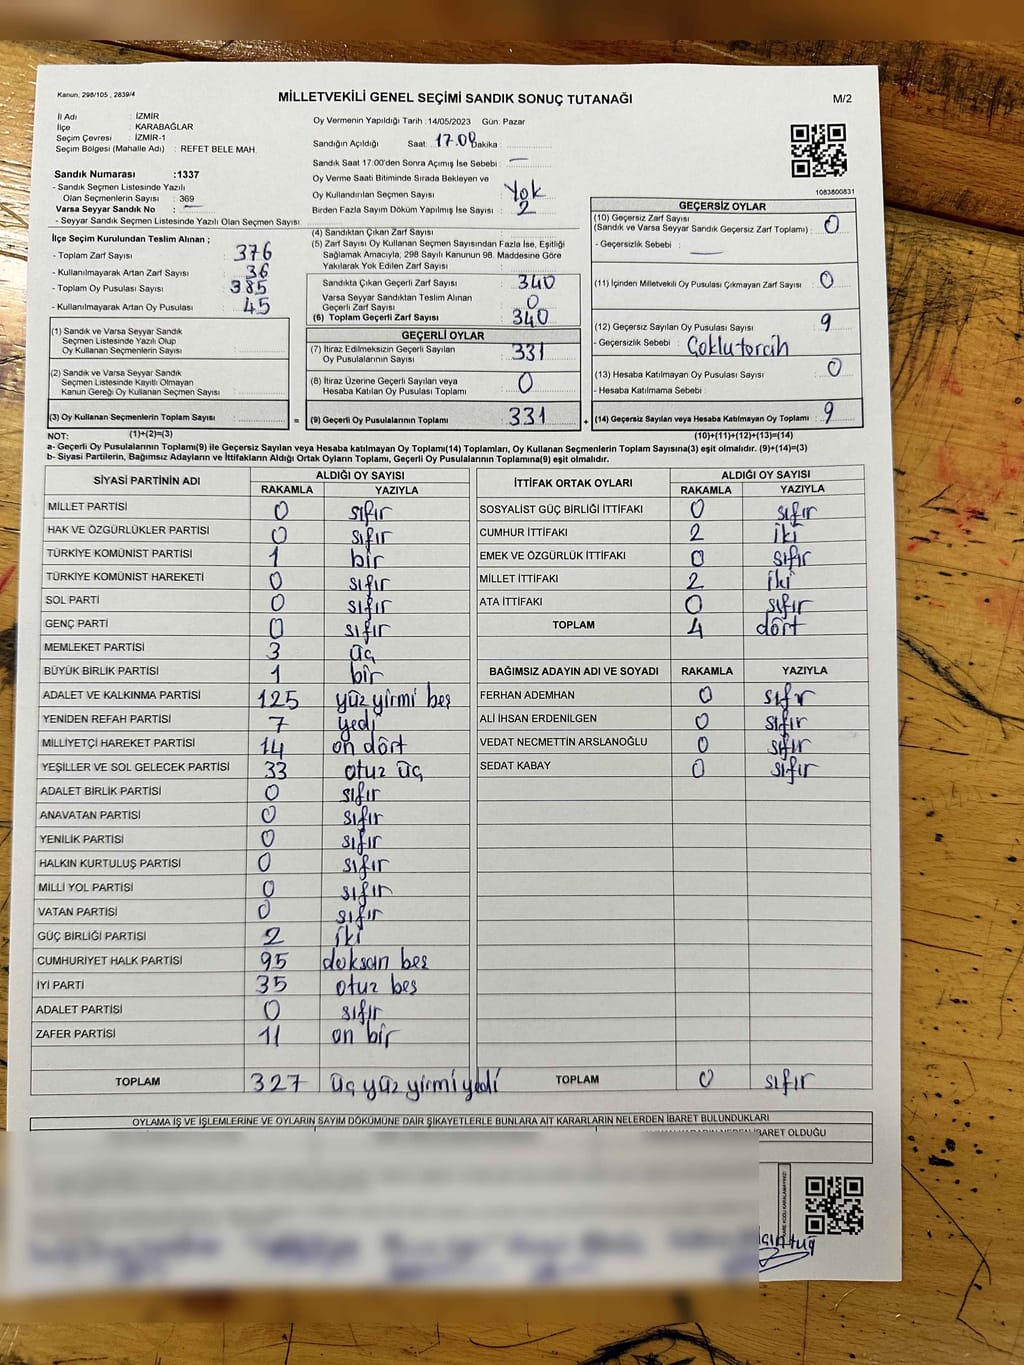 Kanun; 298/105 , 2839/4
MİLLETVEKİLİ GENEL SEÇİMİ SANDIK SONUÇ TUTANAĞI
M/2
İl Adı : İZMİR
İlçe : KARABAĞLAR
Seçim Çevresi : İZMİR-1
Seçim Bölgesi (Mahalle Adı) : REFET BELE MAH.
Sandık Numarası :1337
- Sandık Seçmen Listesinde Yazılı
Olan Seçmenlerin Sayısı : 369
Varsa Seyyar Sandık No : —
- Seyyar Sandık Seçmen Listesinde Yazılı Olan Seçmen Sayısı:
Oy Vermenin Yapıldığı Tarih :14/05/2023 Gün: Pazar
Sandığın Açıldığı Saat: 17.00 Dakika :
Sandık Saat 17:00'den Sonra Açımış İse Sebebi : —
Oy Verme Saati Bitiminde Sırada Bekleyen ve
Oy Kullandırılan Seçmen Sayısı : Yok
Birden Fazla Sayım Döküm Yapılmış İse Sayısı : 2
1083800831
İlçe Seçim Kurulundan Teslim Alınan ;
- Toplam Zarf Sayısı : 376
- Kullanılmayarak Artan Zarf Sayısı : 36
- Toplam Oy Pusulası Sayısı : 385
- Kullanılmayarak Artan Oy Pusulası : 45
(1) Sandık ve Varsa Seyyar Sandık
Seçmen Listesinde Yazılı Olup
Oy Kullanan Seçmenlerin Sayısı :
(2) Sandık ve Varsa Seyyar Sandık
Seçmen Listesinde Kayıtlı Olmayan
Kanun Gereği Oy Kullanan Seçmen Sayısı :
(3) Oy Kullanan Seçmenlerin Toplam Sayısı : =
(1)+(2)=(3)
(4) Sandıktan Çıkan Zarf Sayısı :
(5) Zarf Sayısı Oy Kullanan Seçmen Sayısından Fazla İse, Eşitliği
Sağlamak Amacıyla; 298 Sayılı Kanunun 98. Maddesine Göre
Yakılarak Yok Edilen Zarf Sayısı :
Sandıkta Çıkan Geçerli Zarf Sayısı : 340
Varsa Seyyar Sandıktan Teslim Alınan
Geçerli Zarf Sayısı : 0
(6) Toplam Geçerli Zarf Sayısı : 340
GEÇERLİ OYLAR
(7) İtiraz Edilmeksizin Geçerli Sayılan
Oy Pusulalarının Sayısı : 331
(8) İtiraz Üzerine Geçerli Sayılan veya
Hesaba Katılan Oy Pusulası Toplamı : 0
(9) Geçerli Oy Pusulalarının Toplamı : 331 +
GEÇERSİZ OYLAR
(10) Geçersiz Zarf Sayısı
(Sandık ve Varsa Seyyar Sandık Geçersiz Zarf Toplamı) : 0
- Geçersizlik Sebebi : —
(11) İçinden Milletvekili Oy Pusulası Çıkmayan Zarf Sayısı : 0
(12) Geçersiz Sayılan Oy Pusulası Sayısı : 9
- Geçersizlik Sebebi : Çoklu tercih
(13) Hesaba Katılmayan Oy Pusulası Sayısı : 0
- Hesaba Katılmama Sebebi :
(14) Geçersiz Sayılan veya Hesaba Katılmayan Oy Toplamı : 9
(10)+(11)+(12)+(13)=(14)
NOT:
a- Geçerli Oy Pusulalarının Toplamı(9) ile Geçersiz Sayılan veya Hesaba katılmayan Oy Toplamı(14) Toplamları, Oy Kullanan Seçmenlerin Toplam Sayısına(3) eşit olmalıdır. (9)+(14)=(3)
b- Siyasi Partilerin, Bağımsız Adayların ve İttifakların Aldığı Ortak Oyların Toplamı, Geçerli Oy Pusulalarının Toplamına(9) eşit olmalıdır.
SİYASİ PARTİNİN ADI ALDIĞI OY SAYISI
RAKAMLA YAZIYLA
MİLLET PARTİSİ 0 sıfır
HAK VE ÖZGÜRLÜKLER PARTİSİ 0 sıfır
TÜRKİYE KOMÜNİST PARTİSİ 1 bir
TÜRKİYE KOMÜNİST HAREKETİ 0 sıfır
SOL PARTİ 0 sıfır
GENÇ PARTİ 0 sıfır
MEMLEKET PARTİSİ 3 üç
BÜYÜK BİRLİK PARTİSİ 1 bir
ADALET VE KALKINMA PARTİSİ 125 yüz yirmi beş
YENİDEN REFAH PARTİSİ 7 yedi
MİLLİYETÇİ HAREKET PARTİSİ 14 on dört
YEŞİLLER VE SOL GELECEK PARTİSİ 33 otuz üç
ADALET BİRLİK PARTİSİ 0 sıfır
ANAVATAN PARTİSİ 0 sıfır
YENİLİK PARTİSİ 0 sıfır
HALKIN KURTULUŞ PARTİSİ 0 sıfır
MİLLİ YOL PARTİSİ 0 sıfır
VATAN PARTİSİ 0 sıfır
GÜÇ BİRLİĞİ PARTİSİ 2 iki
CUMHURİYET HALK PARTİSİ 95 doksan beş
İYİ PARTİ 35 otuz beş
ADALET PARTİSİ 0 sıfır
ZAFER PARTİSİ 11 on bir
TOPLAM 327 üç yüz yirmi yedi
İTTİFAK ORTAK OYLARI ALDIĞI OY SAYISI
RAKAMLA YAZIYLA
SOSYALİST GÜÇ BİRLİĞİ İTTİFAKI 0 sıfır
CUMHUR İTTİFAKI 2 iki
EMEK VE ÖZGÜRLÜK İTTİFAKI 0 sıfır
MİLLET İTTİFAKI 2 iki
ATA İTTİFAKI 0 sıfır
TOPLAM 4 dört
BAĞIMSIZ ADAYIN ADI VE SOYADI RAKAMLA YAZIYLA
FERHAN ADEMHAN 0 sıfır
ALİ İHSAN ERDENİLGEN 0 sıfır
VEDAT NECMETTİN ARSLANOĞLU 0 sıfır
SEDAT KABAY 0 sıfır
TOPLAM 0 sıfır
OYLAMA İŞ VE İŞLEMLERİNE VE OYLARIN SAYIM DÖKÜMÜNE DAİR ŞİKAYETLERLE BUNLARA AİT KARARLARIN NELERDEN İBARET BULUNDUKLARI
İBARET OLDUĞU